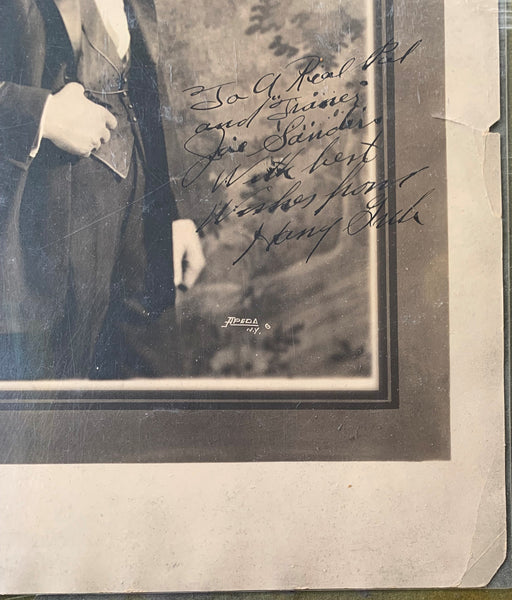 To A Real Pal
and "Trainer"
Joe Sanders
With best
Wishes from
Harry Greb
APEDA
N.Y. 8